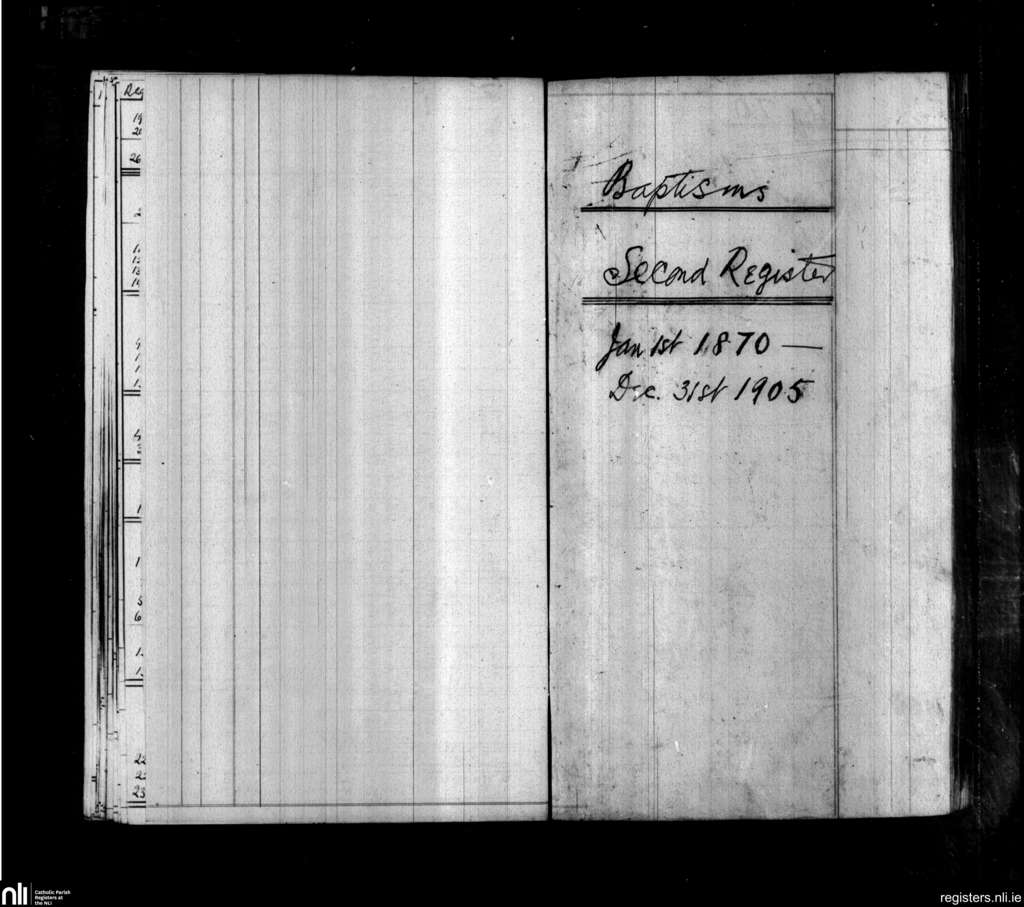 Deg
19
26
2
5
6
22
23
Baptisms
Second Register
Jan 1st 1870 —
Dec. 31st 1905
nli
Catholic Parish
Registers at
the NLI
registers.nli.ie